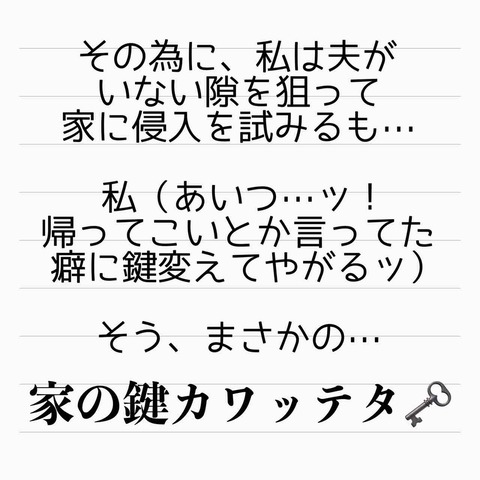 その為に、私は夫が
いない隙を狙って
家に侵入を試みるも…
私（あいつ…ッ！
帰ってこいとか言ってた
癖に鍵変えてやがるッ）
そう、まさかの…
家の鍵カワッテタ🗝